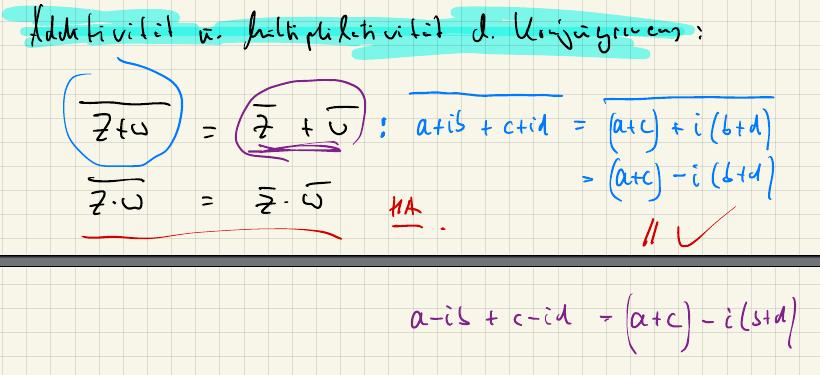 Additivität u. Multiplikativität d. Konjugierens:
$\overline{z+w} = \overline{z} + \overline{w}$ : $\overline{a+ib + c+id} = \overline{(a+c) + i(b+d)}$
$= (a+c) - i(b+d)$
$\overline{z \cdot w} = \overline{z} \cdot \overline{w}$ HA.
|| ✓
$a-ib + c-id = (a+c) - i(b+d)$